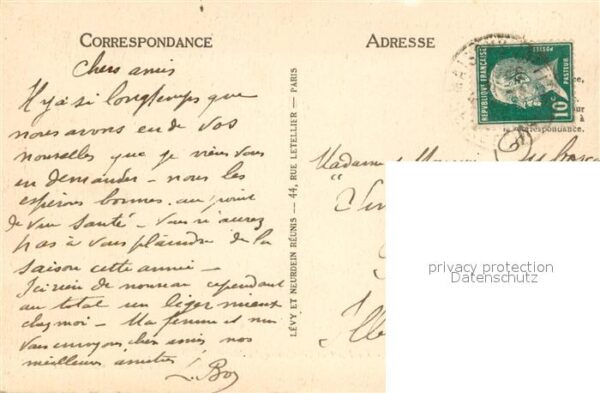 CORRESPONDANCE
Chers amis
Il y a si longtemps que
nous avons eu de vos
nouvelles que je viens vous
en demander – nous les
espérons bonnes au point
de vue santé – Vous n'aurez
pas à vous plaindre de la
saison cette année –
Ici rien de nouveau cependant
au total un léger mieux
chez moi – Ma femme et moi
vous envoyons chers amis nos
meilleures amitiés !
L. Bos
LÉVY ET NEURDEIN RÉUNIS — 44, RUE LETELLIER — PARIS
ADRESSE
REPUBLIQUE FRANÇAISE
POSTES
PASTEUR
10c
la correspondance.
Madame
privacy protection
Datenschutz